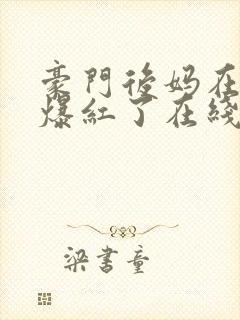 豪門後妈在
爆紅了在綫
梁書童